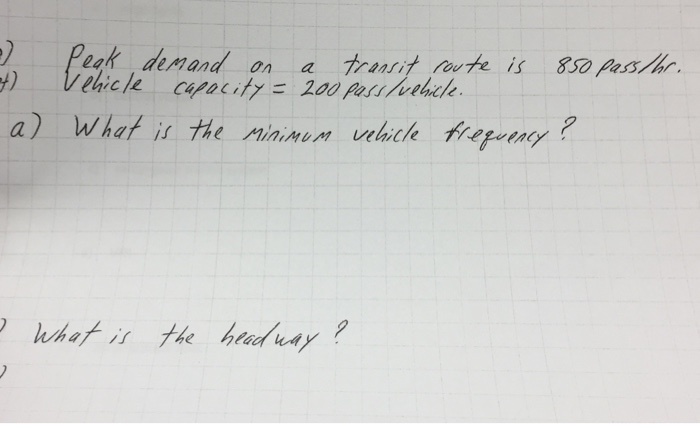 ) Peak demand on a transit route is 850 pass/hr.
) Vehicle capacity = 200 pass/vehicle.
a) What is the minimum vehicle frequency?
What is the headway?